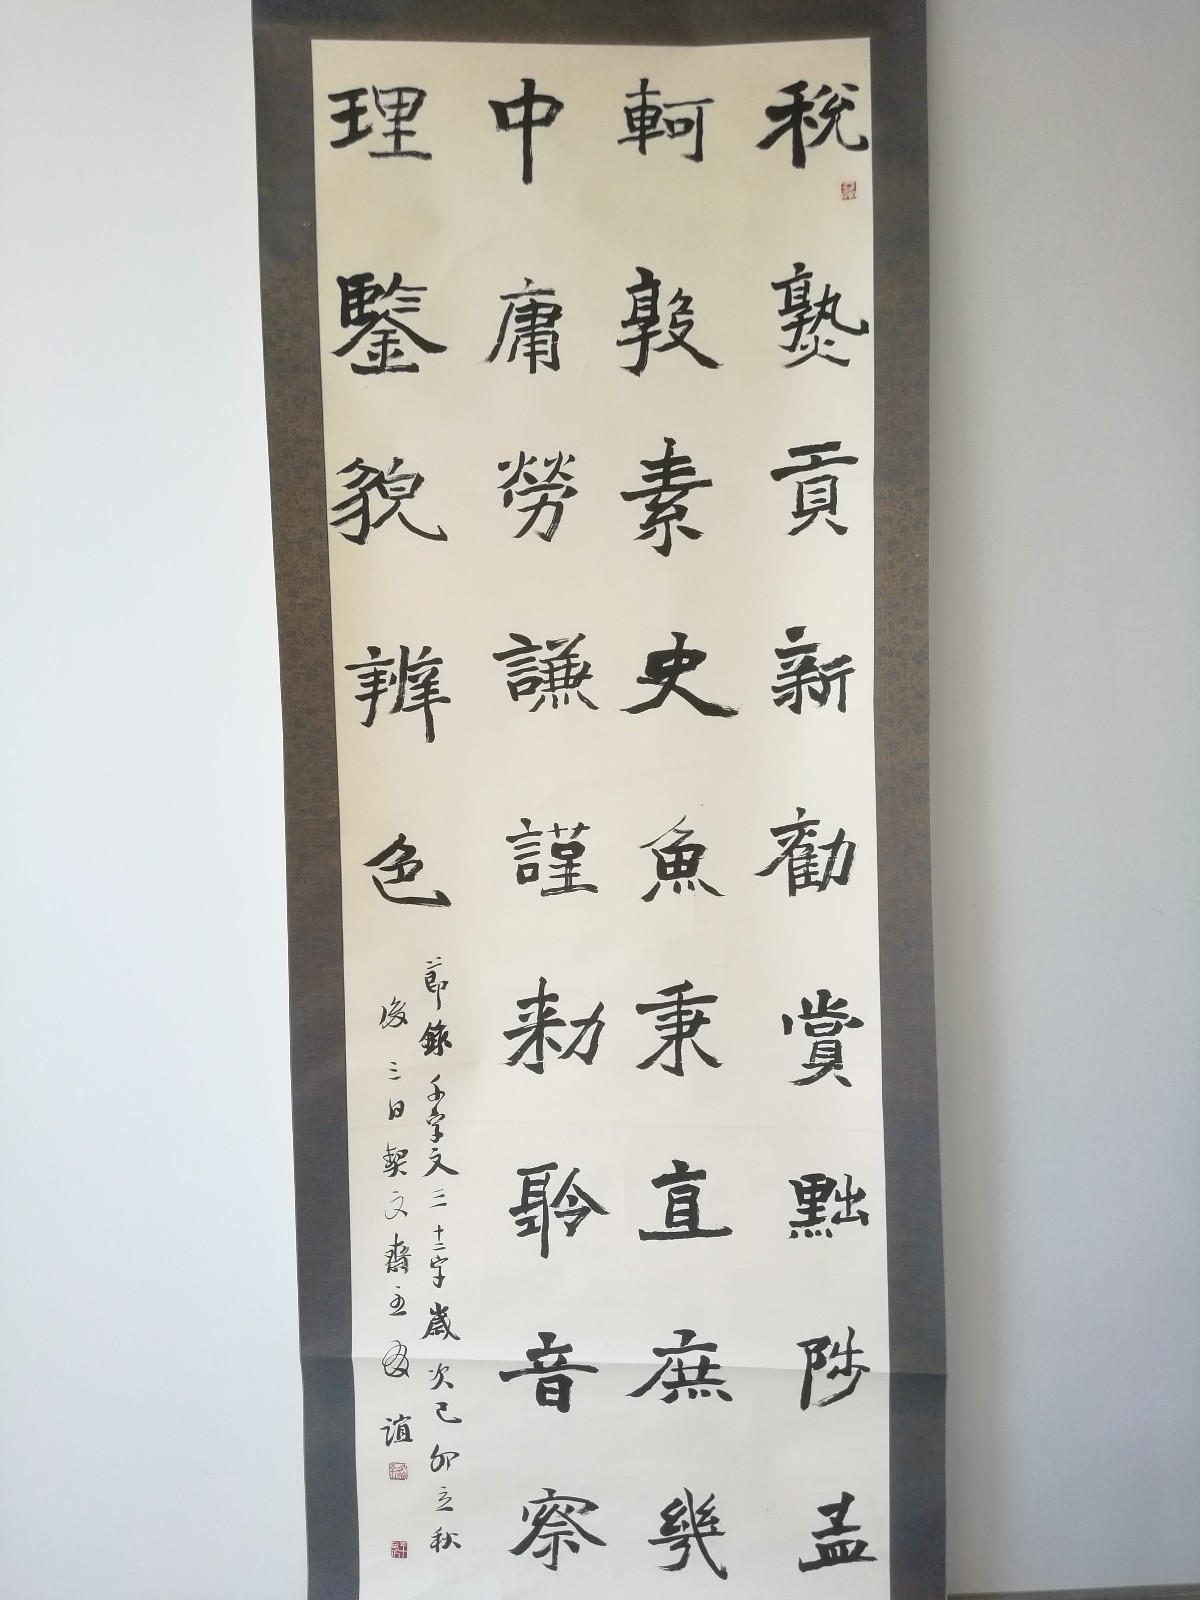 稅熟貢新勸賞黜陟孟
軻敦素史魚秉直庶幾
中庸勞謙謹勑聆音察
理鑒貌辨色
節錄千字文三十二字歲次己卯立秋
後三日契文齋主
誼